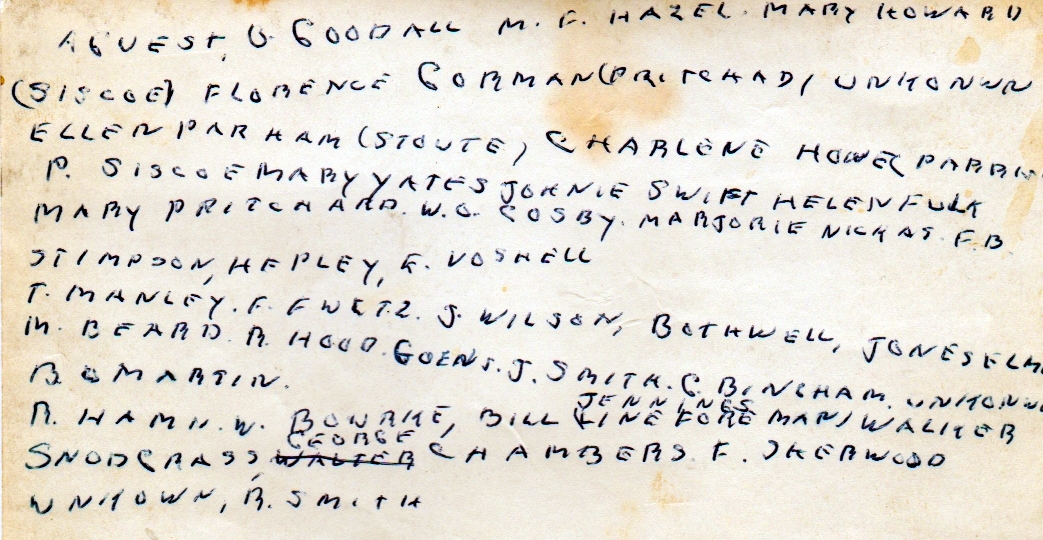 AGUEST, G GOODALL M. F. HAZEL. MARY HOWARD
(SISCOE) FLORENCE GORMAN (PRITCHAD) UNKONWN
ELLEN PARHAM (STOUTE) CHARLENE HOWE (PARRI
P. SISCOE MARY YATES JOHNIE SWIFT HELEN FULK
MARY PRITCHARD. W.O. COSBY. MARJORIE NICHAS. F.B.
STIMPSON, HEPLEY, E. VOSHELL
T. MANLEY. F. J. WILSON, BOTHWELL, JONES ELM
M. BEARD. R. HOOD. GOENS. J. SMITH. C. BINGHAM. UNKONW
B. O MARTIN.
JENNINGS
R. HAMN. W. BOURKE, BILL (LINE FOREMAN) WALKER
GEORGE
SNODGRASS, WALTER CHAMBERS. F. SHERWOOD
UNKOWN, R. SMITH